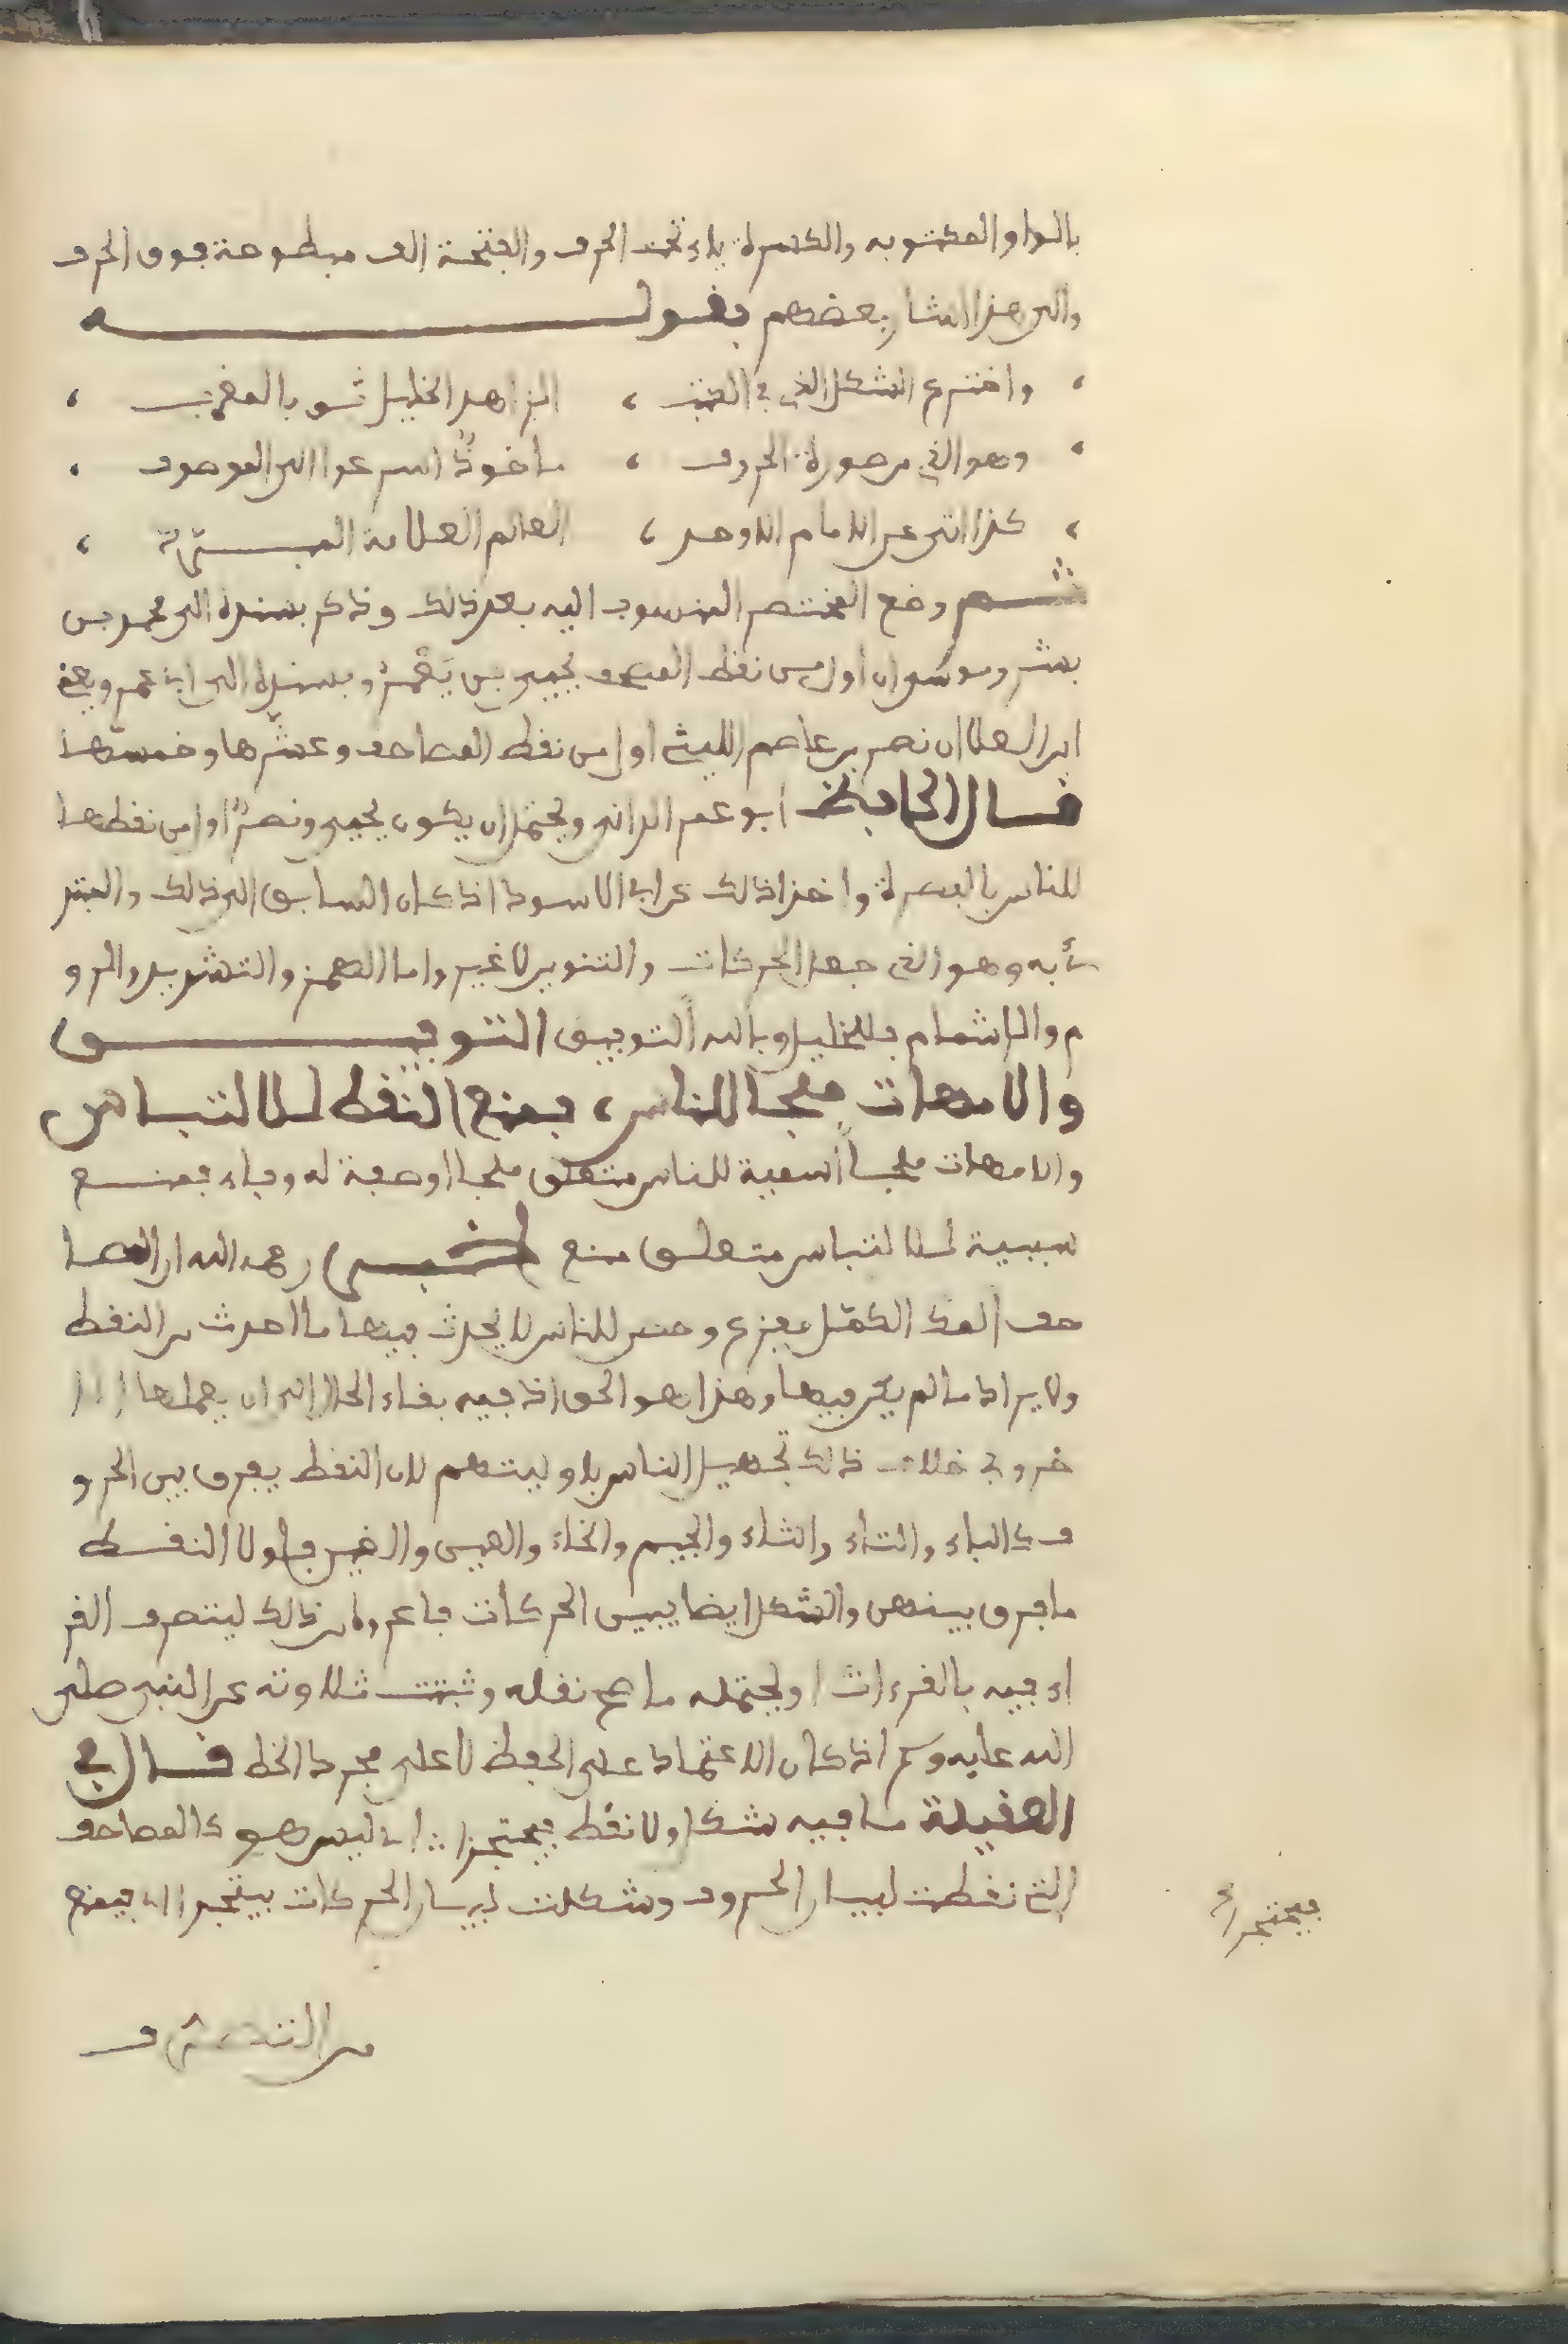 بالواو المكتوبه والكسرة ياء تحت الحرف والفتحة الف مبطوحة فوق الحرف
والى هذا اشار بعضهم بقوله
واخترع الشكل الذي في الكتب ، الزاهد الخليل ثم بالمغرب ،
وهو الذي من صورة الحروف ، ماخوذ اسرعوا الى الموصوف .
كذا اتى عن الامام الاوحد ، العالم العلامة المبرد ،
ثم وضع المختصر المنسوب اليه بعد ذلك وذكر بسنده الى محمد بن
بشر ان اول من نقط المصحف يحيى بن يَعْمَرْ وبسنده الى ابي عمرو يعني
ابن العلا ان نصر بن عاصم الليثي اول من نقط المصاحف وعشّرها وخمسها
قال الحافظ ابو عمر الداني ويحتمل ان يكون يحيى ونصرًا اول من نقطها
للناس بالبصرة واخذا ذلك عن ابي الاسود اذ كان السابق الى ذلك والمبتد
ئ به وهو الذي جعل الحركات والتنوين لا غير واما الهمز والتشديد والرو
م والاشمام فللخليل وبالله التوفيق التوفيق
والامهات ملجا للناس ، فمنع النقط للالتباس
والامهات ملجأ اسمية للناس متعلق ملجا او صفة له وفاء فمنع
سببية للالتباس متعلق منع اخبر رحمه الله ان المصا
حف الكمّل مفزع وحصن للناس لا يحدث فيها ما احدث من النقط
ولا يزاد ما لم يكن فيها وهذا هو الحق اذ فيه بقاء الحال الى ان يحملها الا
خر وفي خلاف ذلك تجهيل الناس باوليتهم لان النقط يفرق بين الحرو
ف كالباء والتاء والثاء والجيم والخاء والعين والغين فلولا النقط
ما فرق بينهن والشكل ايضا يبين الحركات فاعروها من ذلك ليتصرف القر
اء فيه بالقرءات اويحتمله ما صح نقله وثبتت تلاوته عن النبي صلى
الله عليه وسلم اذ كان الاعتماد على الحفظ لا على مجرد الخط قال في
العقيلة ما فيه شكل ولا نقط فيحتجرا اي ليس هو كالمصاحف
التي نقطت لبيان الحروف وشكلت لبيان الحركات فيحتجرا اي فيمنع
فيحتجرا
من التصرف